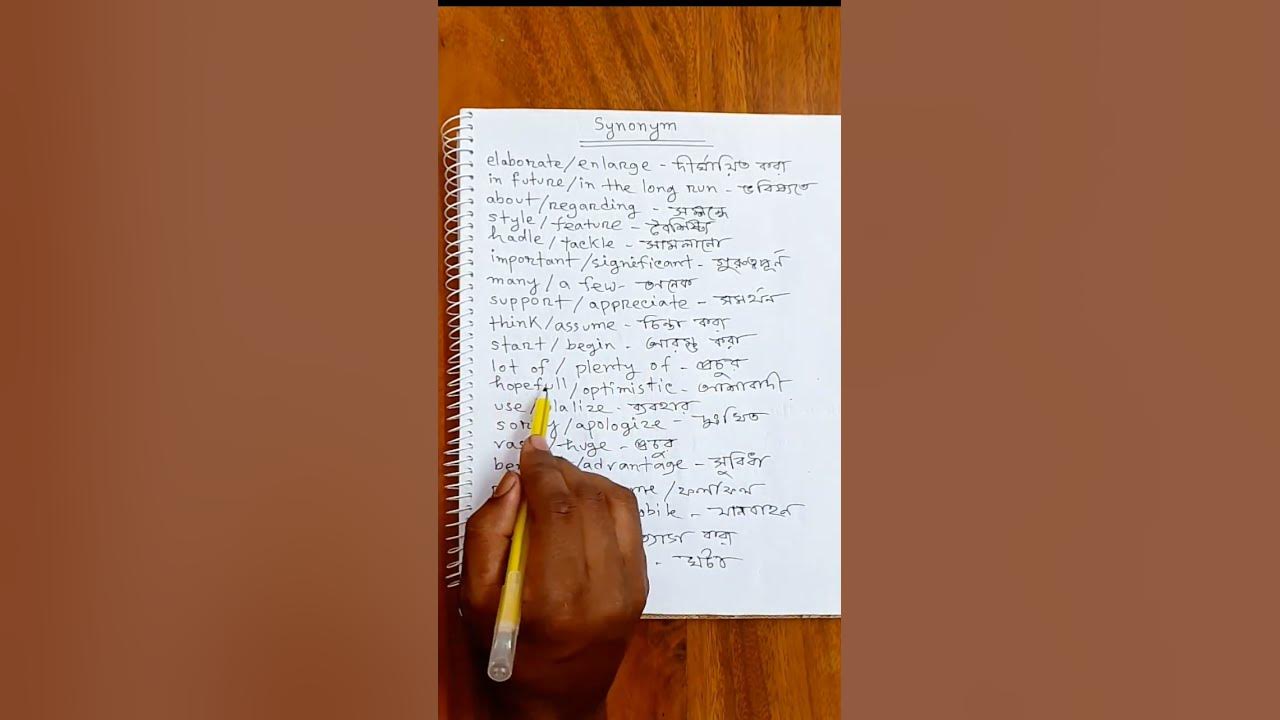 Synonym
elaborate/enlarge - দীর্ঘায়িত করা
in future/in the long run - ভবিষ্যতে
about/regarding - সম্পর্কে
style/feature - বৈশিষ্ট্য
hadle/tackle - সামলানো
important/significant - গুরুত্বপূর্ন
many/a few - অনেক
support/appreciate - সমর্থন
think/assume - চিন্তা করা
start/begin - আরম্ভ করা
lot of/plenty of - প্রচুর
hopefull/optimistic - আশাবাদী
use - ব্যবহার
/apologize - দুঃখিত
/huge - প্রচুর
/advantage - সুবিধা
/ফলাফল
- যানবাহন
করা
- ঘটা